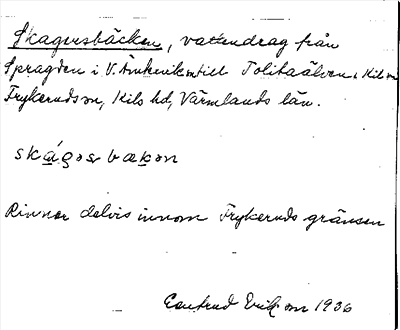 Skagersbäcken, vattendrag från
Spragden i V. Ämtervik till Tolitaälven i Kil o
Frykeruds sn, Kils hd, Värmlands län.
skágosbækon
Rinner delvis innom Frykeruds gränsen
Gertrud Erikson 1936